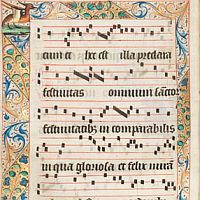 cium et hec est illa preclara
festiuitas omnium sanctor
festiuitatib; in comparabilis
in qua gloriosa et felix